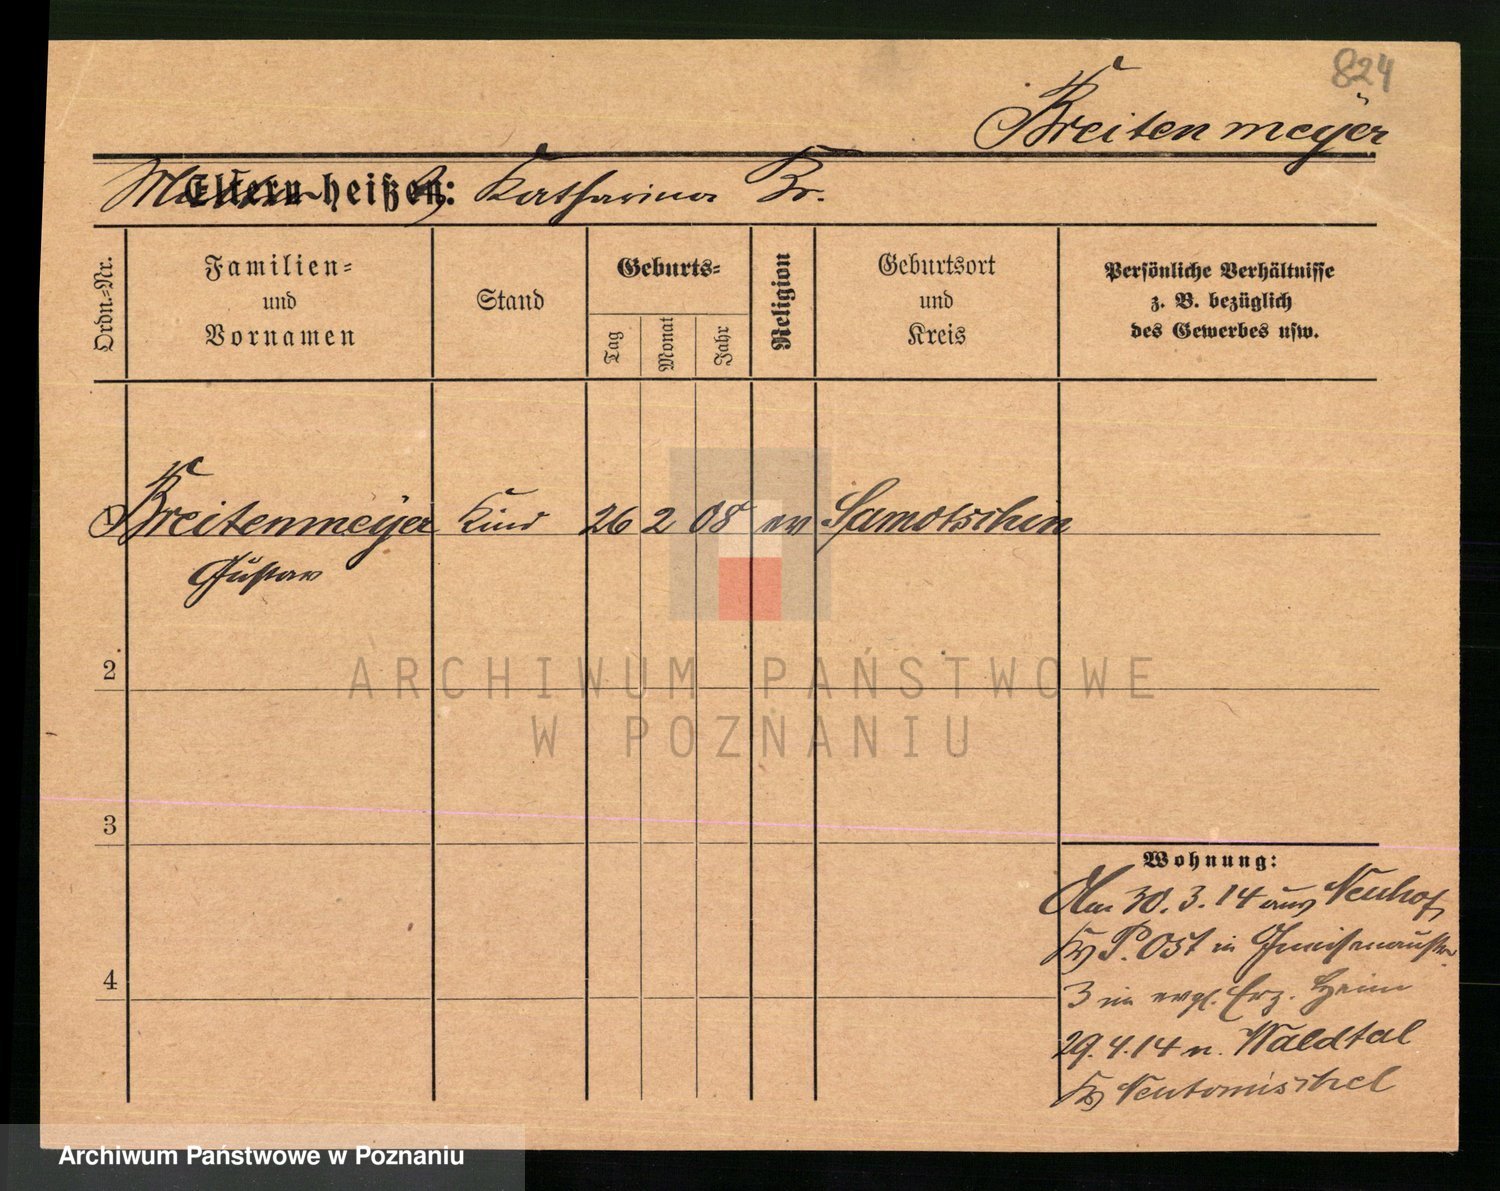 824
Breitenmeÿer
Eltern heißen: Katharina Br.
Ordn.=Nr.
Familien=
und
Vornamen
Stand
Geburts=
Tag
Monat
Jahr
Religion
Geburtsort
und
Kreis
Persönliche Verhältnisse
z. B. bezüglich
des Gewerbes usw.
1 Breitenmeÿer Kind 26 2 08 ev Samotschin
Gustav
2
ARCHIWUM PAŃSTWOWE
W POZNANIU
3
Wohnung:
Am 30. 3. 14 aus Neuhof
Kr P. Ost in Gneisenaustr.
3 im evgl. Erz. Heim
29. 4. 14 n. Waldtal
Kr Neutomischel
4
Archiwum Państwowe w Poznaniu